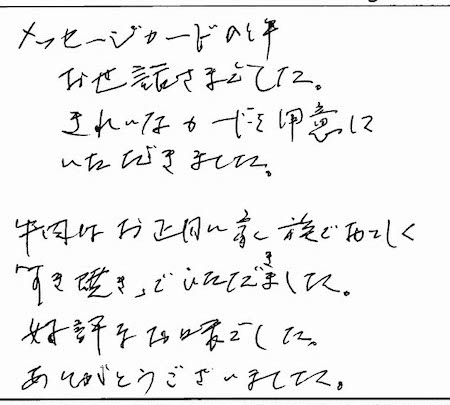 メッセージカードの件
お世話さまでした。
きれいなカードを用意して
いただきました。
牛肉はお正月に家族でおいしく
「すき焼き」でいただきました。
好評なお味でした。
ありがとうございました。